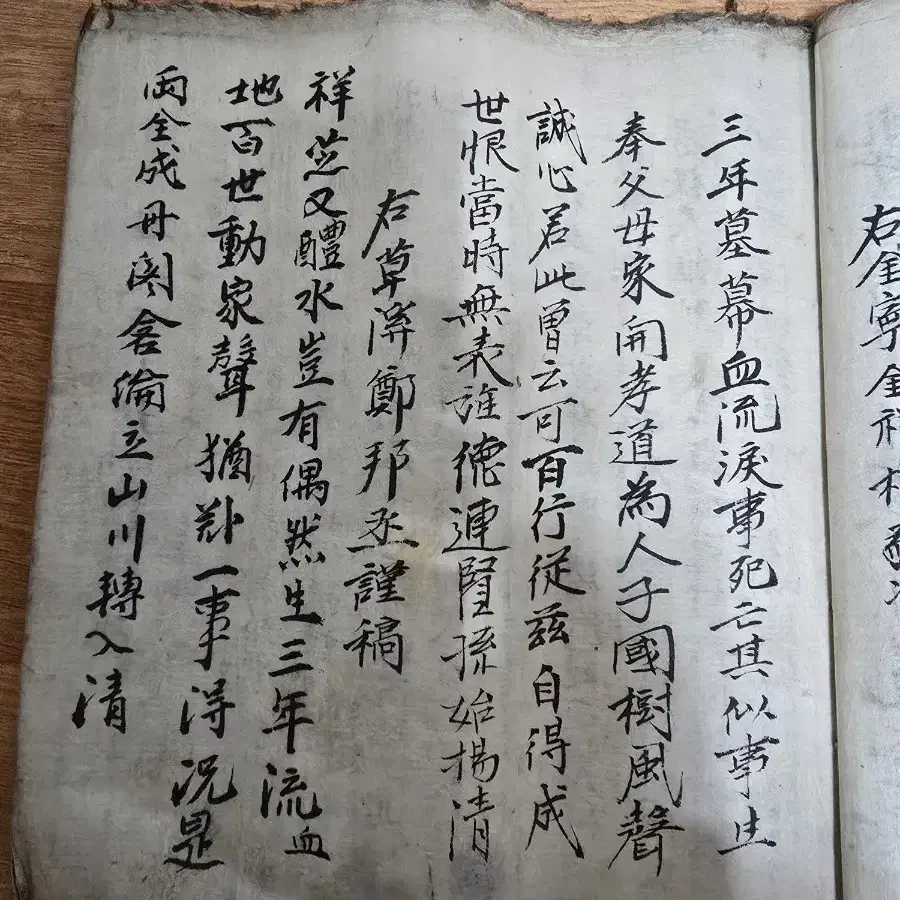 右金寧金
三年墓幕血流淚事死亡其似事生
奉父母家開孝道為人子國樹風聲
誠心若此曾云可百行従茲自得成
世恨當時無表誰德連賢孫始揚清
右草溪鄭邦丞謹稿
祥芝又醴水豈有偶然生三年流血
地百世動家聲猶難一事得況是
兩全成丹閣含論立山川轉入清